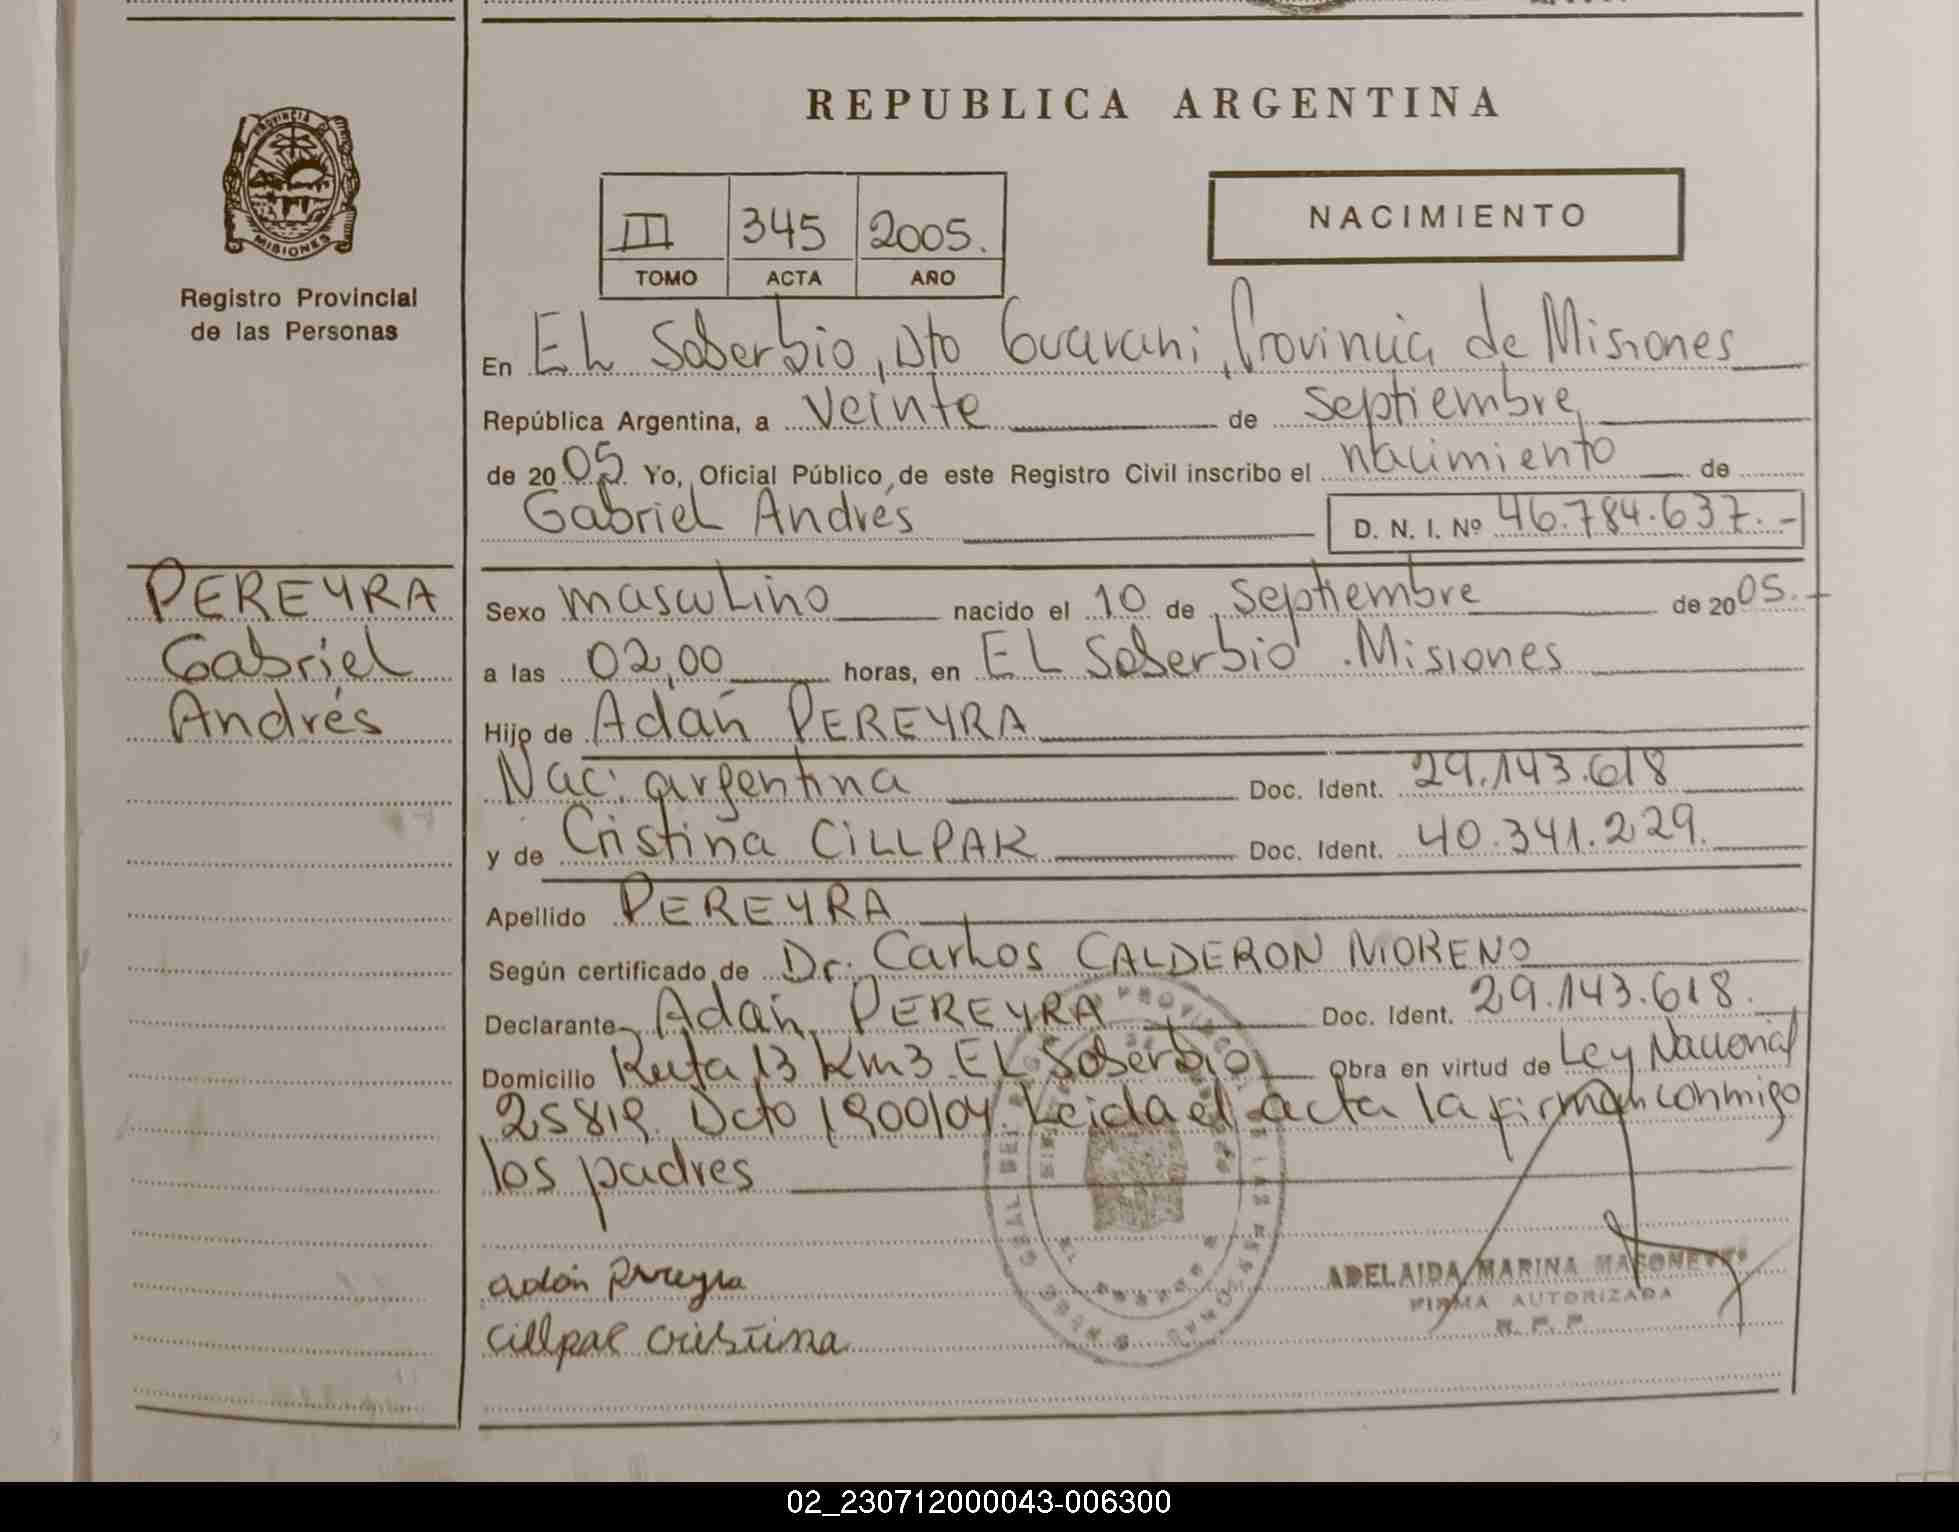 REPUBLICA ARGENTINA
PROVINCIA DE
MISIONES
Registro Provincial
de las Personas
III 345 2005.
TOMO ACTA AÑO
NACIMIENTO
En EL Soberbio, Dto Guarani, Provincia de Misiones
República Argentina, a veinte de septiembre
de 2005 Yo, Oficial Público de este Registro Civil inscribo el nacimiento de
Gabriel Andrés D. N. I. Nº 46.784.637.-
PEREYRA
Gabriel
Andrés
Sexo masculino nacido el 10 de septiembre de 2005.
a las 02,00 horas, en EL Soberbio . Misiones
Hijo de Adán PEREYRA
Nac: argentina Doc. Ident. 29.143.618
y de Cristina CILLPAK Doc. Ident. 40.341.229.
Apellido PEREYRA
Según certificado de Dr. Carlos CALDERON MORENO
Declarante Adán PEREYRA Doc. Ident. 29.143.618.
Domicilio Ruta 13 Km3 EL Soberbio Obra en virtud de Ley Nacional
25819. Dcto 1900/04. Leida el acta la firman conmigo
los padres
adán Pereyra
Cillpak Cristina
ADELAIDA MARINA
FIRMA AUTORIZADA
R. P. P.
02_230712000043-006300